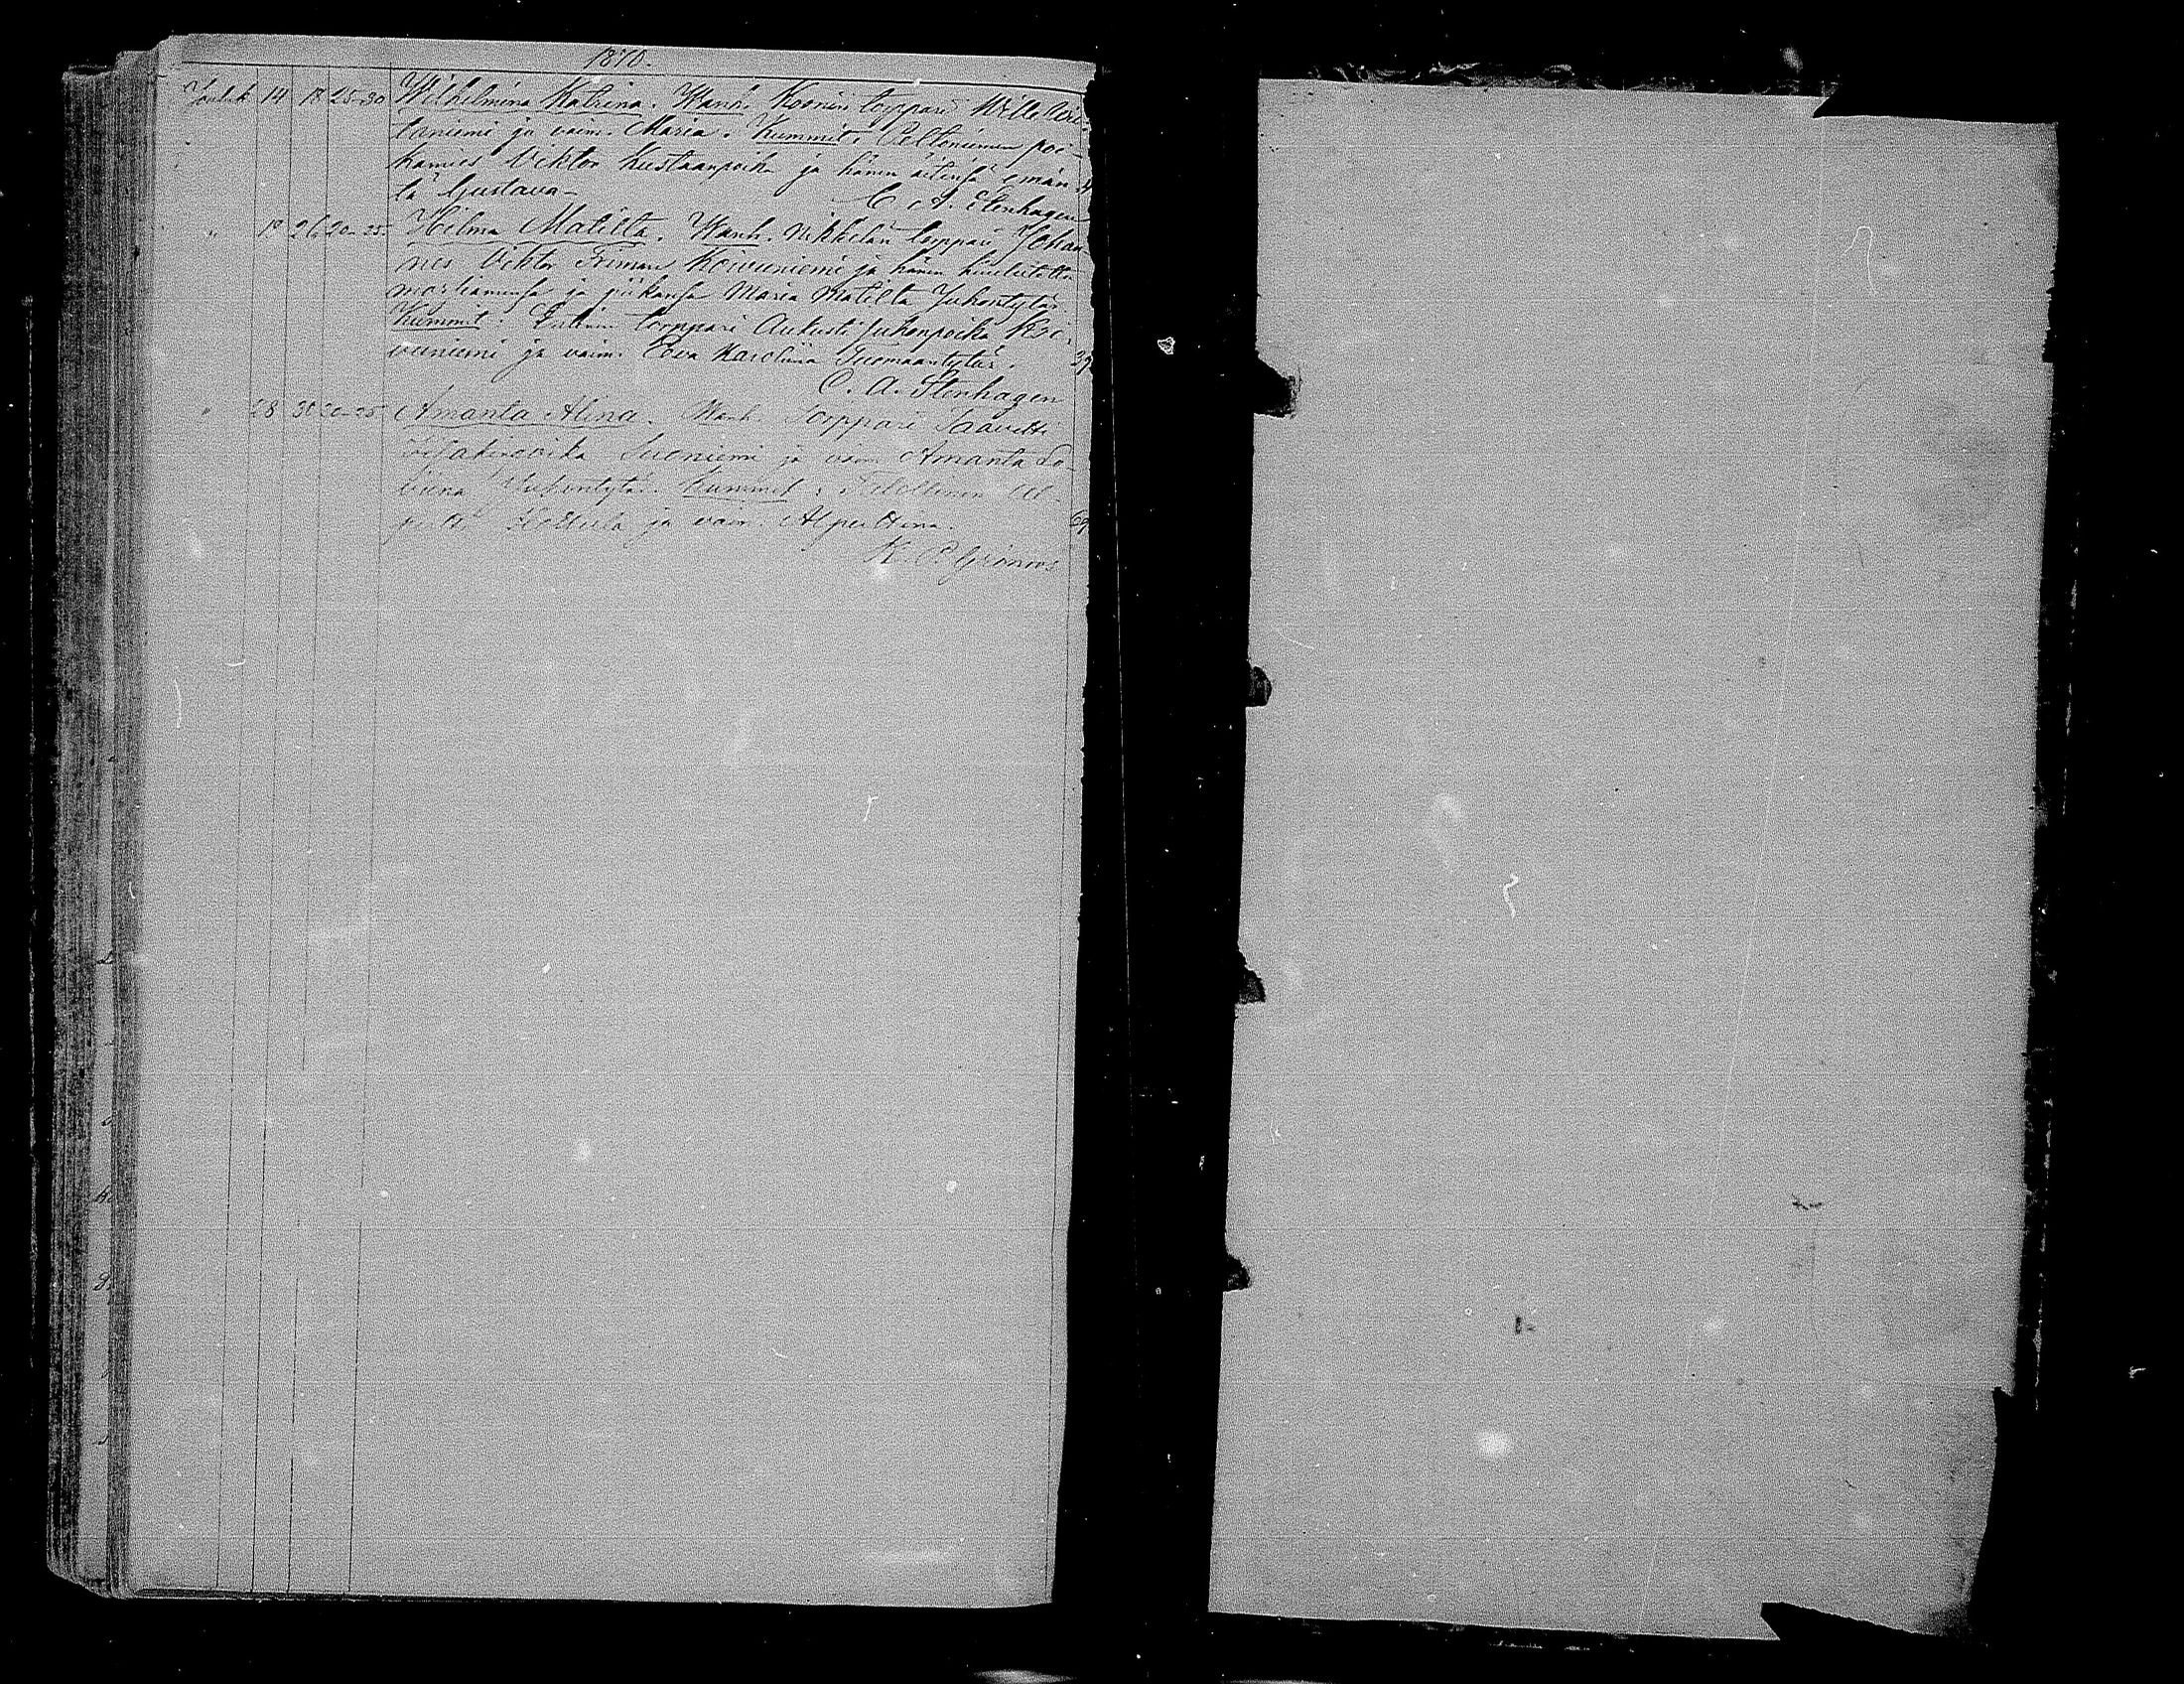 1870.
Jouluk 14 18 25-30 Wilhelmina Katrina. Wanh. Koonin torppari Wille Wei-
taniemi ja vaim. Maria. Kummit. Peltoniemen poi-
kamies Viktor Kustaanpoika ja hänen äitinsä emän-
tä Gustava- C. A. Stenhagen
" 18 26 20-25 Hilma Matilta. Wanh. Nikkilän torppari Johan-
nes Viktor Friman Koivuniemi ja hänen kuulutettu
morsiamensa ja piikansa Maria Matilta Juhontytär
Kummit: torppari Aukusti Juhonpoika Koi-
vuniemi ja vaim. Eeva Karoliina Tuomaantytär. 39
C. A. Stenhagen
" 28 30 20-25 Amanta Alina. Wanh. Torppari Taavetti
Suoniemi ja vaim Amanta Lo-
viina Juhontytär. Kummit:
ja vaim. Alperttina.
K. P. Grönroos